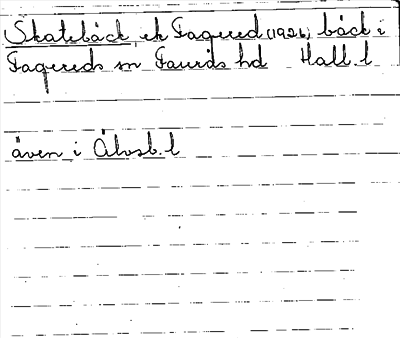 Skatebäck ek Fagered (1926) bäck i
Fagereds sn Faurås hd Hall. l
även i Älvsb. l